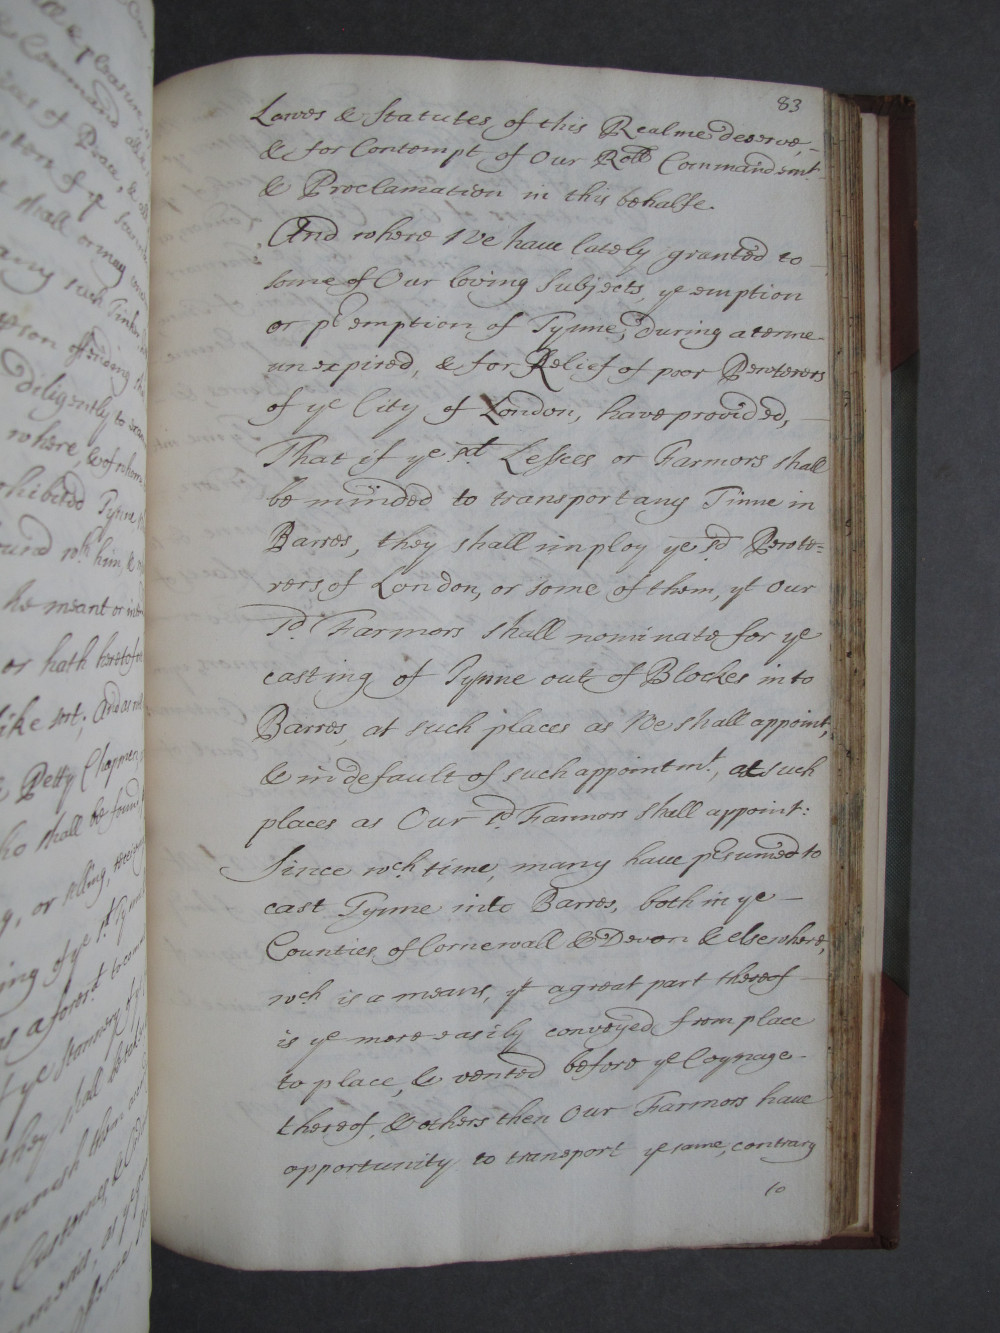 83
Lawes & Statutes of this Realme deserve,-
& for Contempt of Our Roll Commandemt.
& Proclamation in this behalfe.
And where We have lately granted to
some of Our loving Subjects, ye emption
or pemption of Tynne, during a terme
unexpired, & for Relief of poor Pewterers
of ye City of London, have provided,
That if ye sd. Lessees or Farmors shall
be minded to transport any Tinne in
Barres, they shall imploy ye sd. Pewte=
rers of London, or some of them, yt Our
sd. Farmors shall nominate for ye
casting of Tynne out of Blockes into
Barres, at such places as We shall appoint,
& in default of such appointmt., at such
places as Our sd. Farmors shall appoint:
Since wch time, many have psumed to
cast Tynne into Barres, both in ye -
Counties of Cornewall & Devon & elsewhere,
wch is a means, yt a great part thereof
is ye more easily conveyed from place
to place, & vented before ye Coynage
thereof, & others then Our Farmors have
opportunity to transport ye same, contrary
to
where, & of whom
hibited Tynne
he meant or
or hath heretofore
Petty Chapmen
ho shall be found
or selling,
they shall be